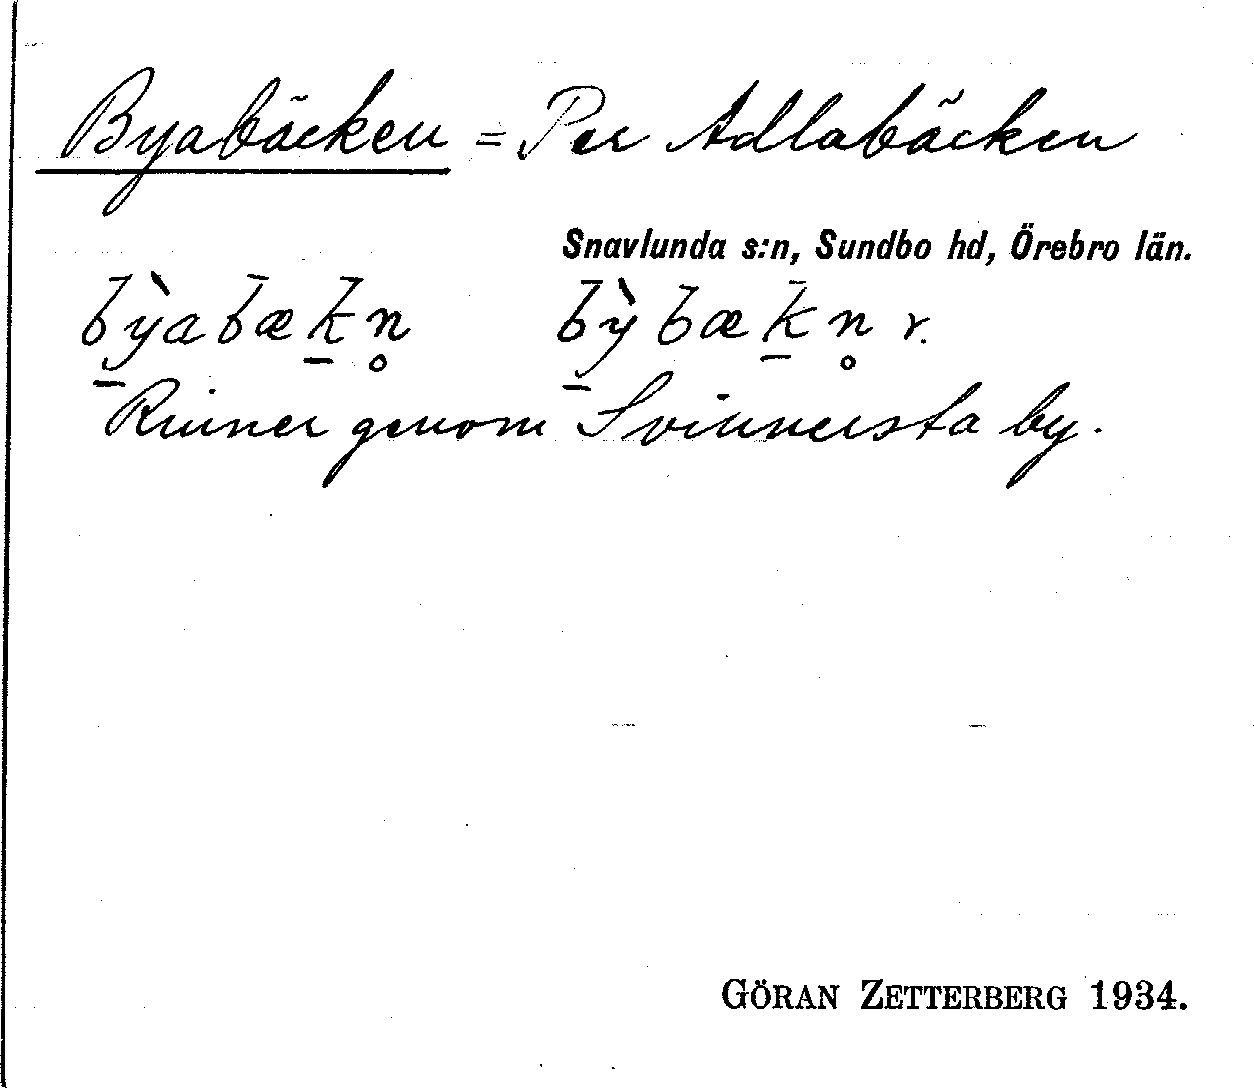 Byabäcken = Per Adlabäcken
Snavlunda s:n, Sundbo hd, Örebro län.
bỳ̠abæk̠n̥ bỳ̠bæk̠n̥ r.
Rinner genom Svinnersta by.
GÖRAN ZETTERBERG 1934.